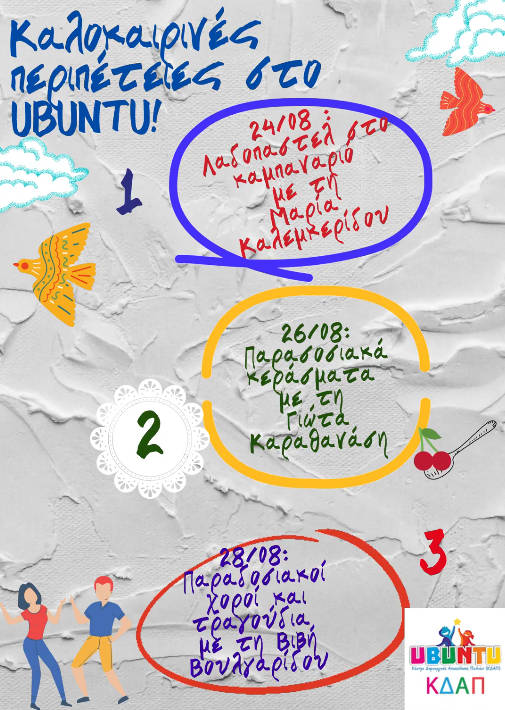 Καλοκαιρινές
περιπέτειες στο
UBUNTU!
1
24/08 :
Λαδοπαστέλ στο
καμπαναριό
με τη
Μαρία
Καλεμκερίδου
2
26/08:
Παρασοσιακά
κεράσματα
με τη
Γιώτα
Καραθανάση
3
28/08:
Παραδοσιακοί
χοροί και
τραγούδια
με τη Βιβή
Βουλγαρίδου
UBUNTU
Κέντρο Δημιουργικής Απασχόλησης Παιδιών (ΚΔΑΠ)
ΚΔΑΠ